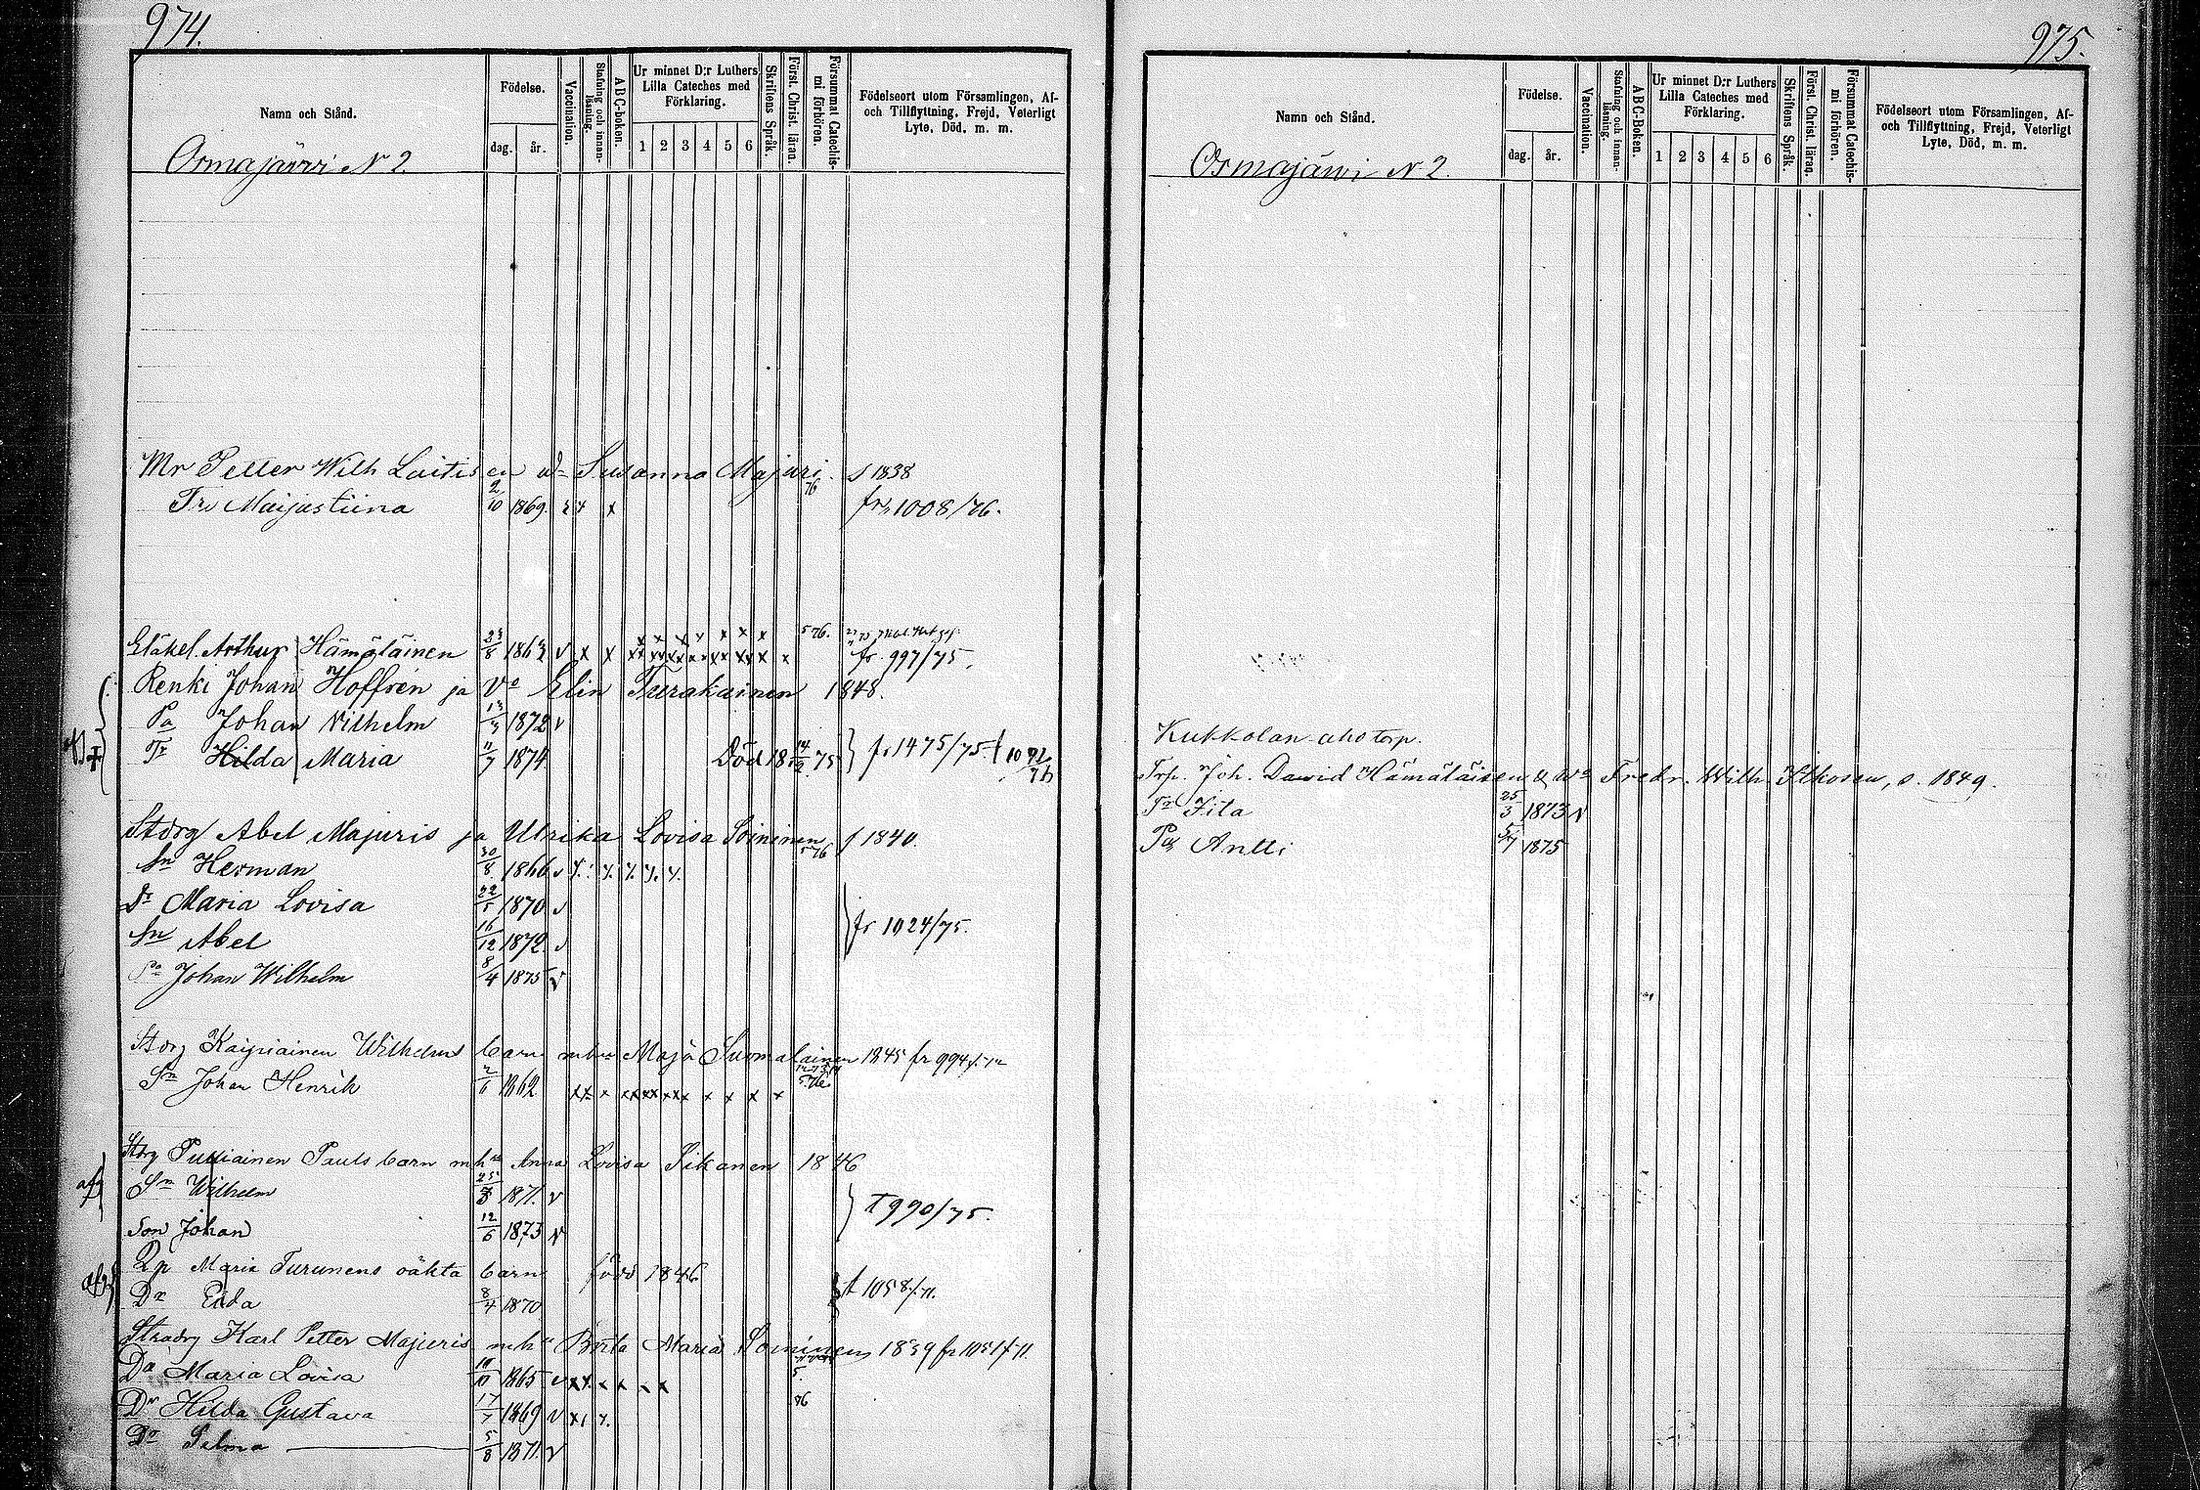 974.
Namn och Stånd.
Födelse.
dag.
år.
Vaccination.
Stafning och innan-läsning.
ABC-boken.
Ur minnet D:r Luthers
Lilla Cateches med
Förklaring.
1 2 3 4 5 6
Skriftens Språk.
Först. Christ. läran.
Försummat Catechis-
mi förhören.
Födelseort utom Församlingen, Af-
och Tillflyttning, Frejd, Veterligt
Lyte, Död, m. m.
Ormajärvi N 2.
Mr Petter Wilh Laitisen Susanna Majuri. f 1838
76
Tr Maijastiina 2/10 1869. x fr 1008/76.
Arthur Hämäläinen 23/8 1863 v x x 5 76. fr 997/75.
Renki Johan Hoffrén ja Vo Elin Turakainen 1848.
Pa Johan Vilhelm 13/3 1872 v
Tr Hilda Maria 11/7 1874 Död 18 14/2 75 fr 1475/75. 1092/76
Abel Majuris ja Ulrika Lovisa Soininen f 1840.
Sn Herman 30/8 1866 v
Dr Maria Lovisa 22/5 1870 v
fr 1024/75.
Sn Abel 16/12 1872 v
Pa Johan Wilhelm 8/4 1875 v
Stdrg Kaipiainen Wilhelms barn Maja Suomalainen 1845 fr 994
Sn Johan Henrik 2/6 1862 x x x x x x x x
Stdrg Pauls barn mhu Anna Lovisa Pikanen 1846
afg Sn Wilhelm 25/3 1871. v
T 990/75.
Son Johan 12/6 1873 v
Maria Turunens oäkta barn född 1846
afg Dr Eeda 8/4 1870 1058/
Karl Petter Majuris mhu Brita Maria Soininen 1839 fr
Dr Maria Lovisa 10/10 1865 v x x
5.
Dr Hilda Gustava 17/7 1869 v x 76
Dr Selma 5/8 1871. v
975.
Namn och Stånd.
Födelse.
dag.
år.
Vaccination.
Stafning och innan-läsning.
ABC-Boken.
Ur minnet D:r Luthers
Lilla Cateches med
Förklaring.
1 2 3 4 5 6
Skriftens Språk.
Först. Christ. läran.
Försummat Catechis-
mi förhören.
Födelseort utom Församlingen, Af-
och Tillflyttning, Frejd, Veterligt
Lyte, Död, m. m.
Ormajärvi N 2.
Kukkolan-aho torp.
Trp. Joh. Dawid Hämäläisen & Fredr. Wilh. Itkosen, s. 1849.
Tr Iita 25/3 1873 v
Pa Antti 5/7 1875